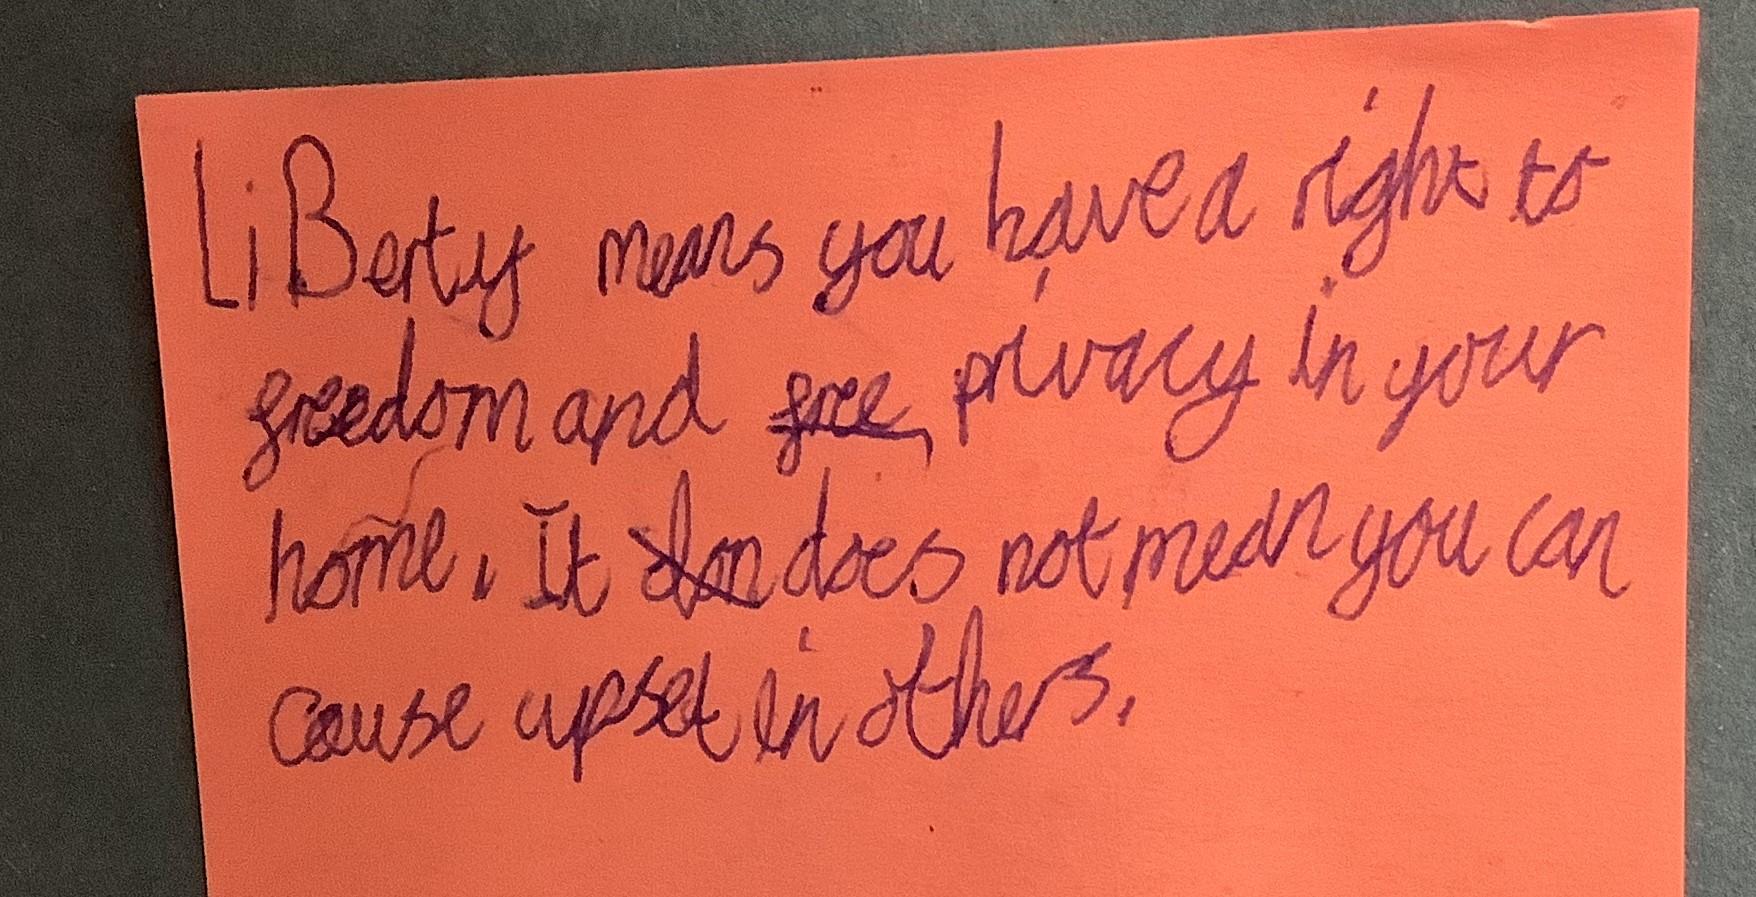 LiBerty means you have a right to
freedom and free, privacy in your
home. It don does not mean you can
cause upset in others.